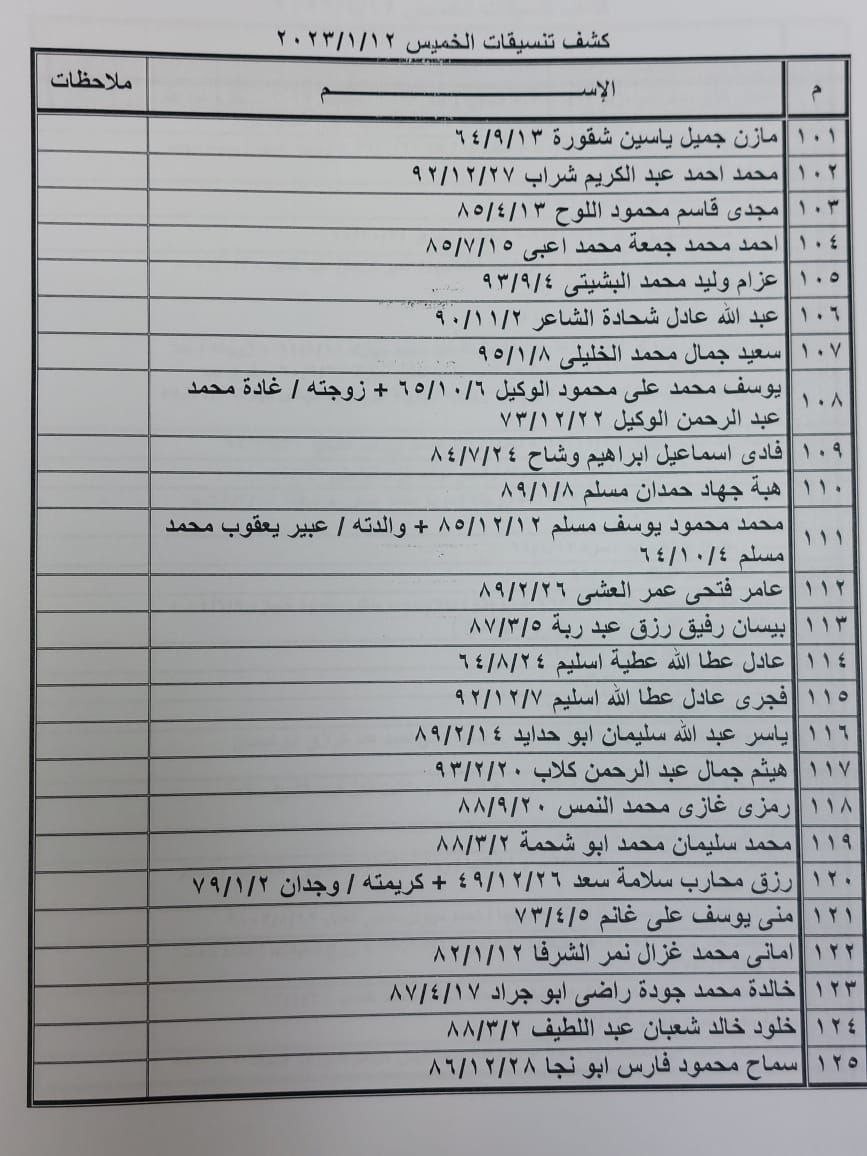 كشف تنسيقات الخميس ٢٠٢٣/١/١٢
م الإســـم ملاحظات
١٠١ مازن جميل ياسين شقورة ٦٤/٩/١٣
١٠٢ محمد احمد عبد الكريم شراب ٩٢/١٢/٢٧
١٠٣ مجدى قاسم محمود اللوح ٨٥/٤/١٣
١٠٤ احمد محمد جمعة محمد اعبى ٨٥/٧/١٥
١٠٥ عزام وليد محمد البشيتى ٩٣/٩/٤
١٠٦ عبد الله عادل شحادة الشاعر ٩٠/١١/٢
١٠٧ سعيد جمال محمد الخليلى ٩٥/١/٨
١٠٨ يوسف محمد على محمود الوكيل ٦٥/١٠/٦ + زوجته / غادة محمد
عبد الرحمن الوكيل ٧٣/١٢/٢٢
١٠٩ فادى اسماعيل ابراهيم وشاح ٨٤/٧/٢٤
١١٠ هبة جهاد حمدان مسلم ٨٩/١/٨
١١١ محمد محمود يوسف مسلم ٨٥/١٢/١٢ + والدته / عبير يعقوب محمد
مسلم ٦٤/١٠/٤
١١٢ عامر فتحى عمر العشى ٨٩/٢/٢٦
١١٣ بيسان رفيق رزق عبد ربة ٨٧/٣/٥
١١٤ عادل عطا الله عطية اسليم ٦٤/٨/٢٤
١١٥ فجرى عادل عطا الله اسليم ٩٢/١٢/٧
١١٦ ياسر عبد الله سليمان ابو حدايد ٨٩/٢/١٤
١١٧ هيثم جمال عبد الرحمن كلاب ٩٣/٢/٢٠
١١٨ رمزى غازى محمد النمس ٨٨/٩/٢٠
١١٩ محمد سليمان محمد ابو شحمة ٨٨/٣/٢
١٢٠ رزق محارب سلامة سعد ٤٩/١٢/٢٦ + كريمته / وجدان ٧٩/١/٢
١٢١ منى يوسف على غانم ٧٣/٤/٥
١٢٢ امانى محمد غزال نمر الشرفا ٨٢/١/١٢
١٢٣ خالدة محمد جودة راضى ابو جراد ٨٧/٤/١٧
١٢٤ خلود خالد شعبان عبد اللطيف ٨٨/٣/٢
١٢٥ سماح محمود فارس ابو نجا ٨٦/١٢/٢٨